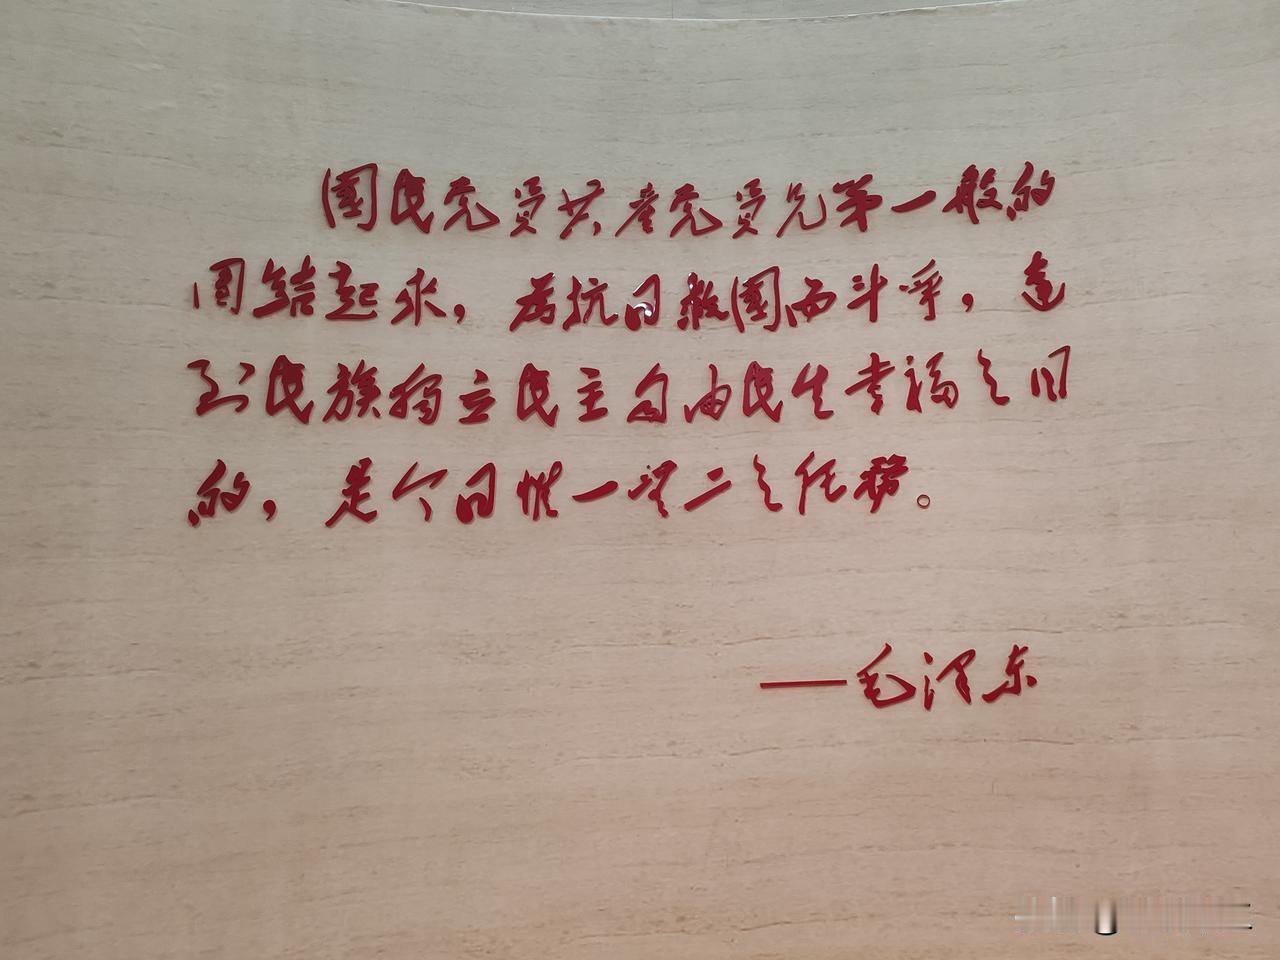 國民党員共產党員兄弟一般的
团结起来，为抗日救國而斗争，達
到民族独立民主自由民生幸福之目
的，是今日惟一無二之任務。
——毛泽东